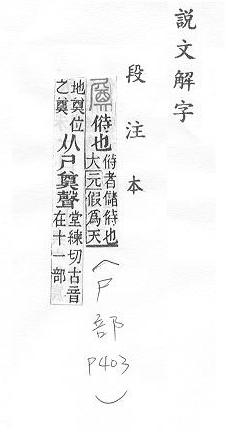 說文解字
段注本
偫也
偫者儲偫也
大元假爲天
地奠位
之奠
从尸奠聲
堂練切古音
在十一部
(尸部 P403)